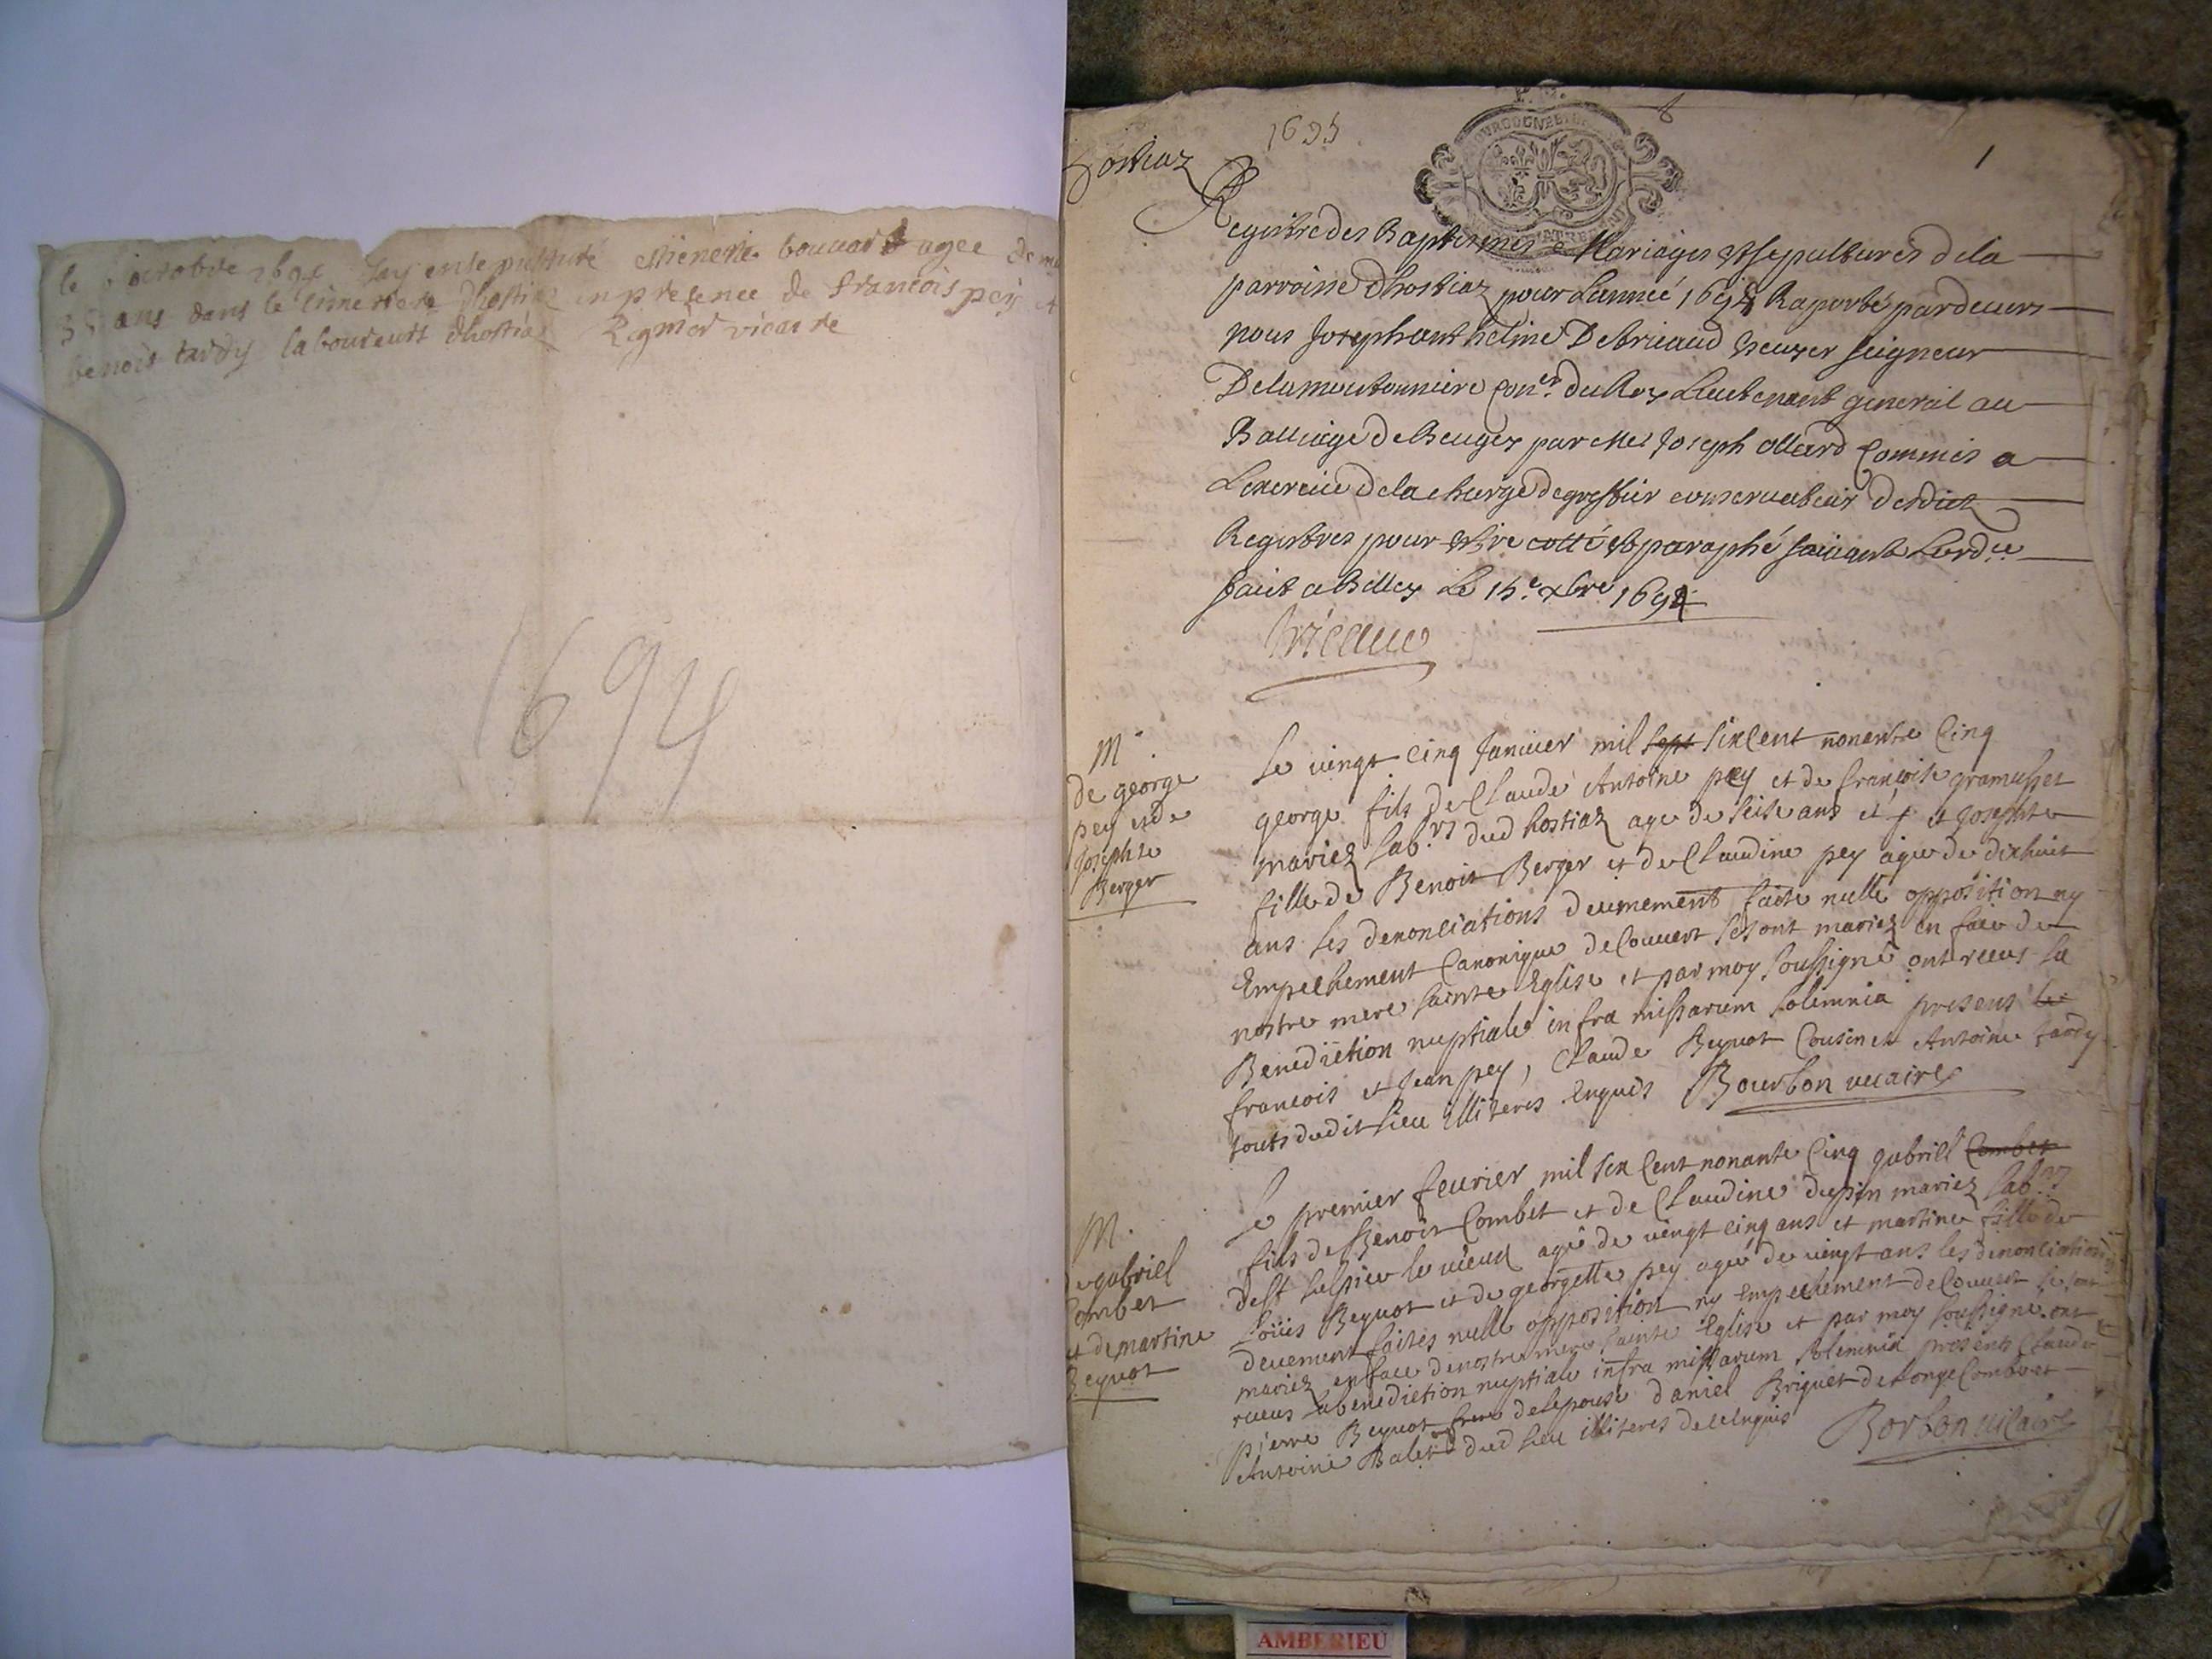 le octobre 1694 Jay ensepulturé estienette bouuard agee de
35 ans dans le cimetiere dhostiaz en presence de francois pey et
benoit tardy laboureurs dhostiaz Regnier vicaire
1694
1695
hostiaz
1
Registre des Baptesmes Mariages et sepultures de la
parroisse dhostiaz pour Lannée 1695 Raporté pardeuers
nous Joseph anthelme De bricaud Escuyer seigneur
De la moutonniere Con.er du Roy Lieutenant general au
Balliage de Beugey par Me Joseph ollard Commis a
Lexercice de la charge de greffier conseruateur desdict
Registres pour estre cotté et paraphé suiuant Lord.ce
faict a Belley Le 15.e xbre 1694
Bricaud
M.
de george
pey et de
Josephte
Berger
Le vingt cinq Januier mil sept sixcent nonente Cinq
george fils de Claude Antoine pey et de francoise gramusset
mariez lab.rs dud hostiaz age de seise ans et Josephte
fille de Benoit Berger et de Claudine pey agee de dixhuict
ans les denonciations deuement faite nulle opposition ny
Empechement Canonique decouuert se sont mariez en face de
nostre mere sainte Eglise et par moy soussigné ont receus la
Benediction nuptiale infra missarum solemnia presens le
francois et Jean pey, Claude Beynot Cousin et Antoine tardy
touts dudit lieu illiteres Enquis Bourbon vicaire
M.
de gabriel
Combet
et de martine
Beynot
Le premier feurier mil six Cent nonante Cinq gabriel Combet
fils de Benoit Combet et de Claudine dupin mariez lab.rs
de st sulpice le vieux agé de vingt cinq ans et martine fille de
Loüis Beynot et de georgette pey agee de vingt ans les denonciations
deuement faites nulle opposition ny Empechement decouuert se sont
mariez en face de nostre mere sainte Eglise et par moy soussigné ont
receus la benediction nuptiale infra missarum solemnia presents Claude
pierre Beynot frere de lepouse daniel Briquet de longe Combe et
Antoine Balet dud lieu illiteres de ce Enquis Borbon vicaire
AMBERIEU